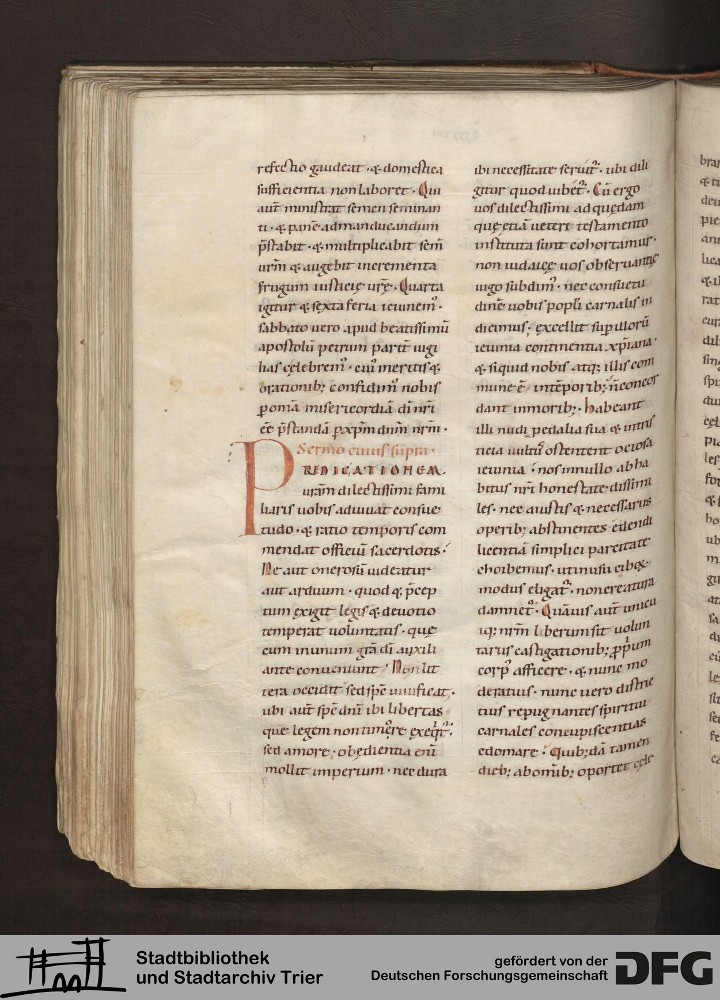 refectio gaudeat · & domestica
sufficientia non laboret · Qui
aut̄ ministrat semen seminan
ti · & panē ad manducandum
p̄stabit · & multiplicabit sem̄
urm̄ & augebit incrementa
frugum iusticię urę̄ · Quarta
igitur & sexta feria ieiunem᷒ ·
sabbato uero apud beatissimū
apostolū petrum parit̄ uigi
lias celebrem᷒ · cui᷒ meritis &
orationib; confidim᷒ nobis
p omīa misericordiā dī nr̄i
eē p̄standā p xp̄m dnm̄ nrm̄ ·
Sermo eiusᷤ supra ·
PREDICATIONEM
uram̄ dilectissimi fami
liaris uobis adiuuat consue
tudo · & ratio temporis com
mendat officiū sacerdotis ·
Ne aut onerosū uideatur
aut arduum · quod & p̄cep
tum exigit legis & deuotio
temperat uoluntatis · que
cum in unum grā dī auxili
ante conueniunt · Non lit
tera occidit sed spē uiuificat ·
ubi aut̄ spē dnī ibi libertas
que legem non timore exeqt̄ ·
sed amore · obedientia enī
mollit imperium · nec dura
ibi necessitate seruit᷒ · ubi dili
gitur quod iubet᷒ · Cū ergo
uos dilectissimi ad quędam
que etiā uetere testamento
instituta sunt cohortamur ·
non iudaicę uos obseruantię
iugo subdim᷒ · nec consuetu
dinē uobis popli carnalis in
dicimus · excellit sup illorū
ieiunia continentia xp̄iana ·
& si quid nobis atq; illis com
mune ē · intēporib; n̄ concor
dant in morib; · habeant
illi nudi pedalia sua & in tris
ticia uultū ostentent ociosa
ieiunia · nos in nullo ab ha
bitus nr̄i honestate dissimi
les · nec a iustis & necessariis
operib; abstinentes · edendi
licentiā simplici parcitate
choibemus · ut in usu cibo᷒
modus eligat᷒ · non creatura
damnet᷒ · Quāuis aut̄ unicu
iq; nrm̄ liberum sit uolun
tariis castigationib; pp̄um
corp᷒ afficere · & nunc mo
deratius · nunc uero distric
tius repugnantes spiritui
carnales concupiscentias
edomare · Quib;dā tamen
dieb; ab omīb; oportet cele
Stadtbibliothek
und Stadtarchiv Trier
gefördert von der
Deutschen Forschungsgemeinschaft
DFG